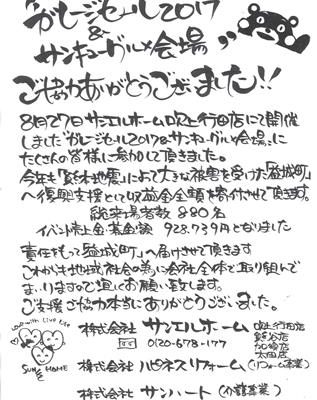 ガレージセール2017
&
サンキューグルメ会場
ご協力ありがとうございました!!
8月27日サンエルホーム吹上行田店にて開催
しました"ガレージセール2017&サンキューグルメ会場"に
たくさんの皆様に参加して頂きました。
今年も『熊本地震』により大きな被害を受けた『益城町』
へ復興支援として収益金全額を寄付させて頂きます。
総来場者数 880名
イベント売上金・募金額 928,739円となりました
責任をもって『益城町』へ届けさせて頂きます
これからも地域社会の為に会社全体で取り組んで
まいりますので宜しくお願い致します。
ご支援ご協力本当にありがとうございました。
Love with Live Life
SUN L HOME
株式会社 サンエルホーム 吹上行田店
熊谷店
加須店
太田店
0120-678-177
株式会社 ハピネスリフォーム(リフォーム事業)
株式会社 サンハート(介護事業)